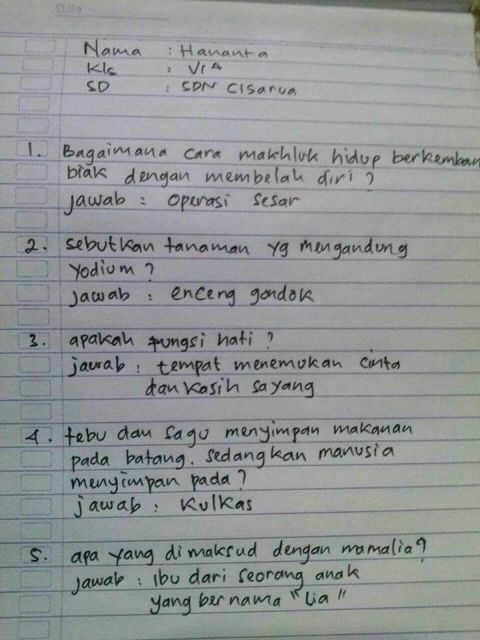 Date
Nama : Hananta
Kls : VI A
SD : SDN Cisarua
1. Bagaimana cara makhluk hidup berkemban
biak dengan membelah diri ?
jawab : operasi sesar
2. sebutkan tanaman yg mengandung
yodium ?
jawab : enceng gondok
3. apakah fungsi hati ?
jawab : tempat menemukan cinta
dan kasih sayang
4. tebu dan sagu menyimpan makanan
pada batang. sedangkan manusia
menyimpan pada ?
jawab : kulkas
5. apa yang di maksud dengan mamalia ?
jawab : ibu dari seorang anak
yang bernama "Lia"